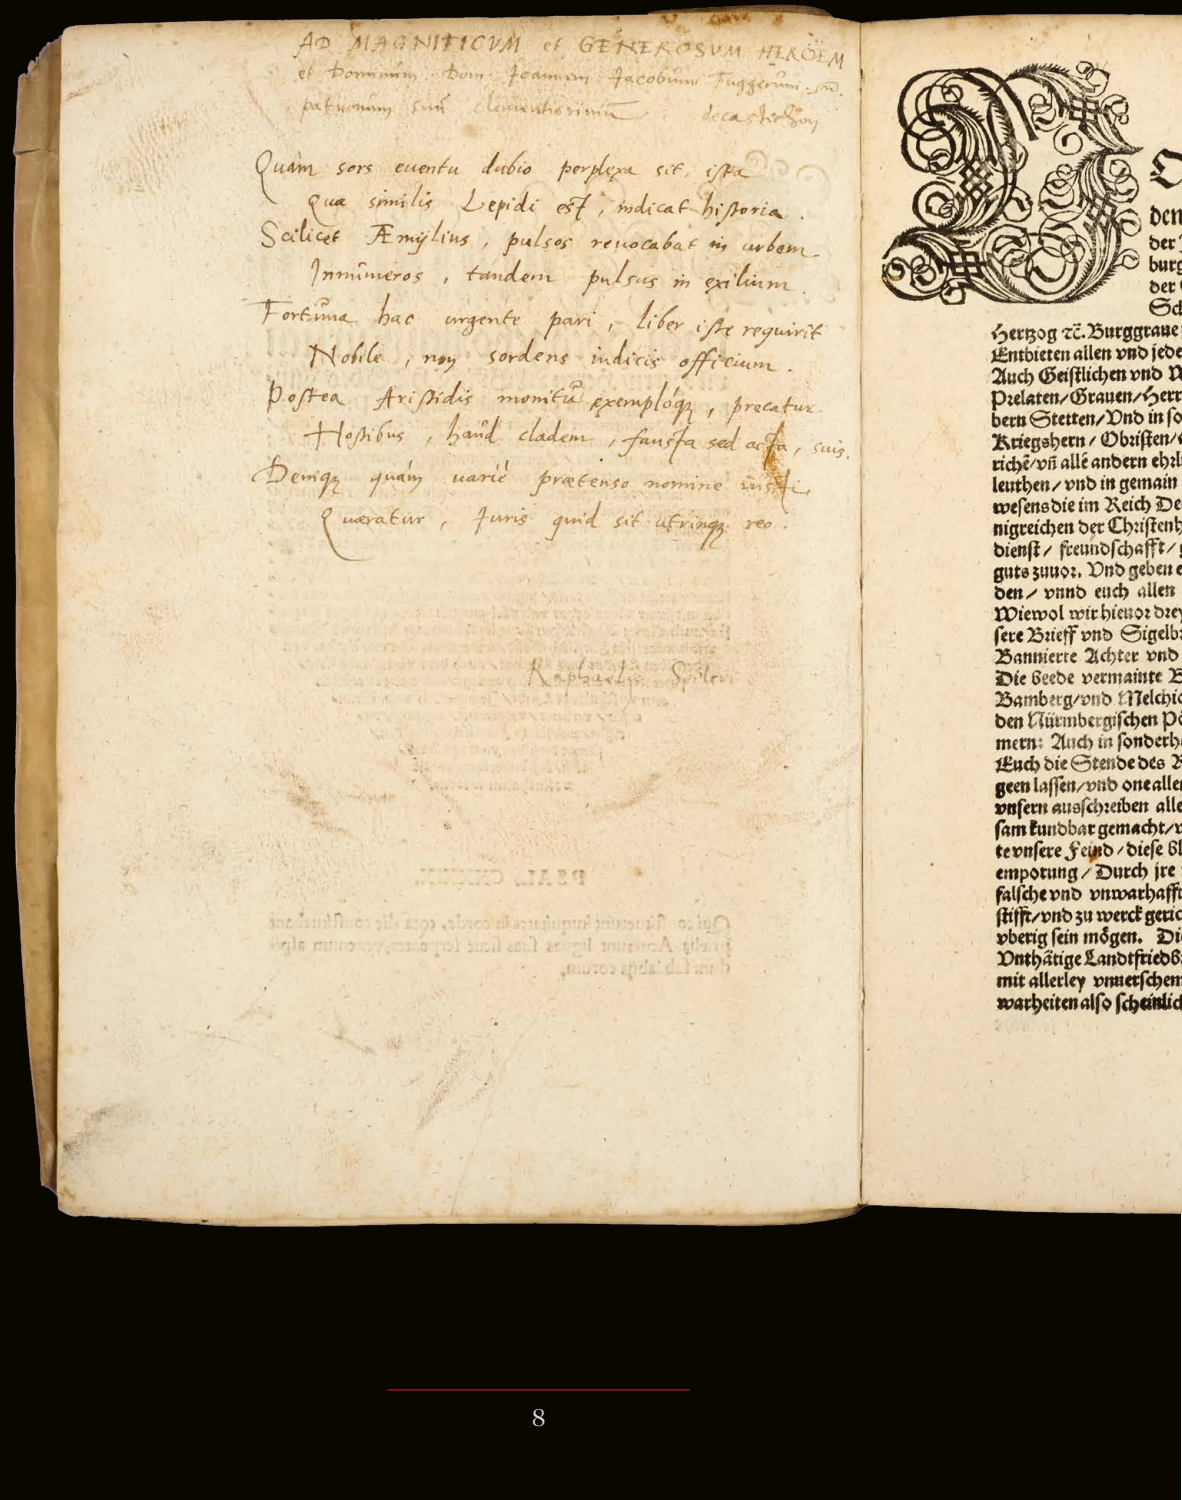 AD MAGNIFICVM et GENEROSVM HEROËM
et Dominum Dom. Joannem Jacobum Fuggerum
patronum suū clementissimū decastichon
Quàm sors euentu dubio perplexa sit, ista
Quæ similis Lepidi est, indicat historia.
Scilicet Æmylius, pulsos reuocabat in urbem
Innumeros, tandem pulsus in exilium.
Fortuna hac urgente pari, liber iste requirit
Nobile, non sordens iudicis officium.
Postea Aristidis monitu exemplóqꝫ, precatur
Hostibus, haud cladem, fausta sed acta, suis.
Deniqꝫ quàm uariè prætenso nomine iusti
Quæratur, Juris quid sit utrinqꝫ reo.
Raphaelis Seileri
den
der
burg
der
Hertzog ꝛc̃. Burggraue
Entbieten allen vnd jede
Auch Geistlichen vnd
Prelaten/Grauen/Herr
bern Stetten/Vnd in so
Kriegshern / Obristen/
richē/vn̄ allē andern ehrl
leuthen/ vnd in gemain
wesens die im Reich De
nigreichen der Christenh
dienst/ freundschafft/
guts zuuor. Vnd geben e
den/ vnnd euch allen
Wiewol wir hieuor drey
sere Brieff vnd Sigelbr
Bannierte Achter vnd
Die beede vermainte B
Bamberg/vnd Melchio
den Nürmbergischen Pö
mern: Auch in sonderh
Euch die Stende des R
geen lassen/vnd one alle
vnsern ausschreiben alle
sam kundbar gemacht/v
te vnsere Feind/diese bl
emporung/ Durch jre
falsche vnd vnwarhafft
stifft/vnd zu werck geric
vberig sein mögen. Die
Vnthätige Landtfriedb
mit allerley vnuerschem
warheiten also scheinlich
8